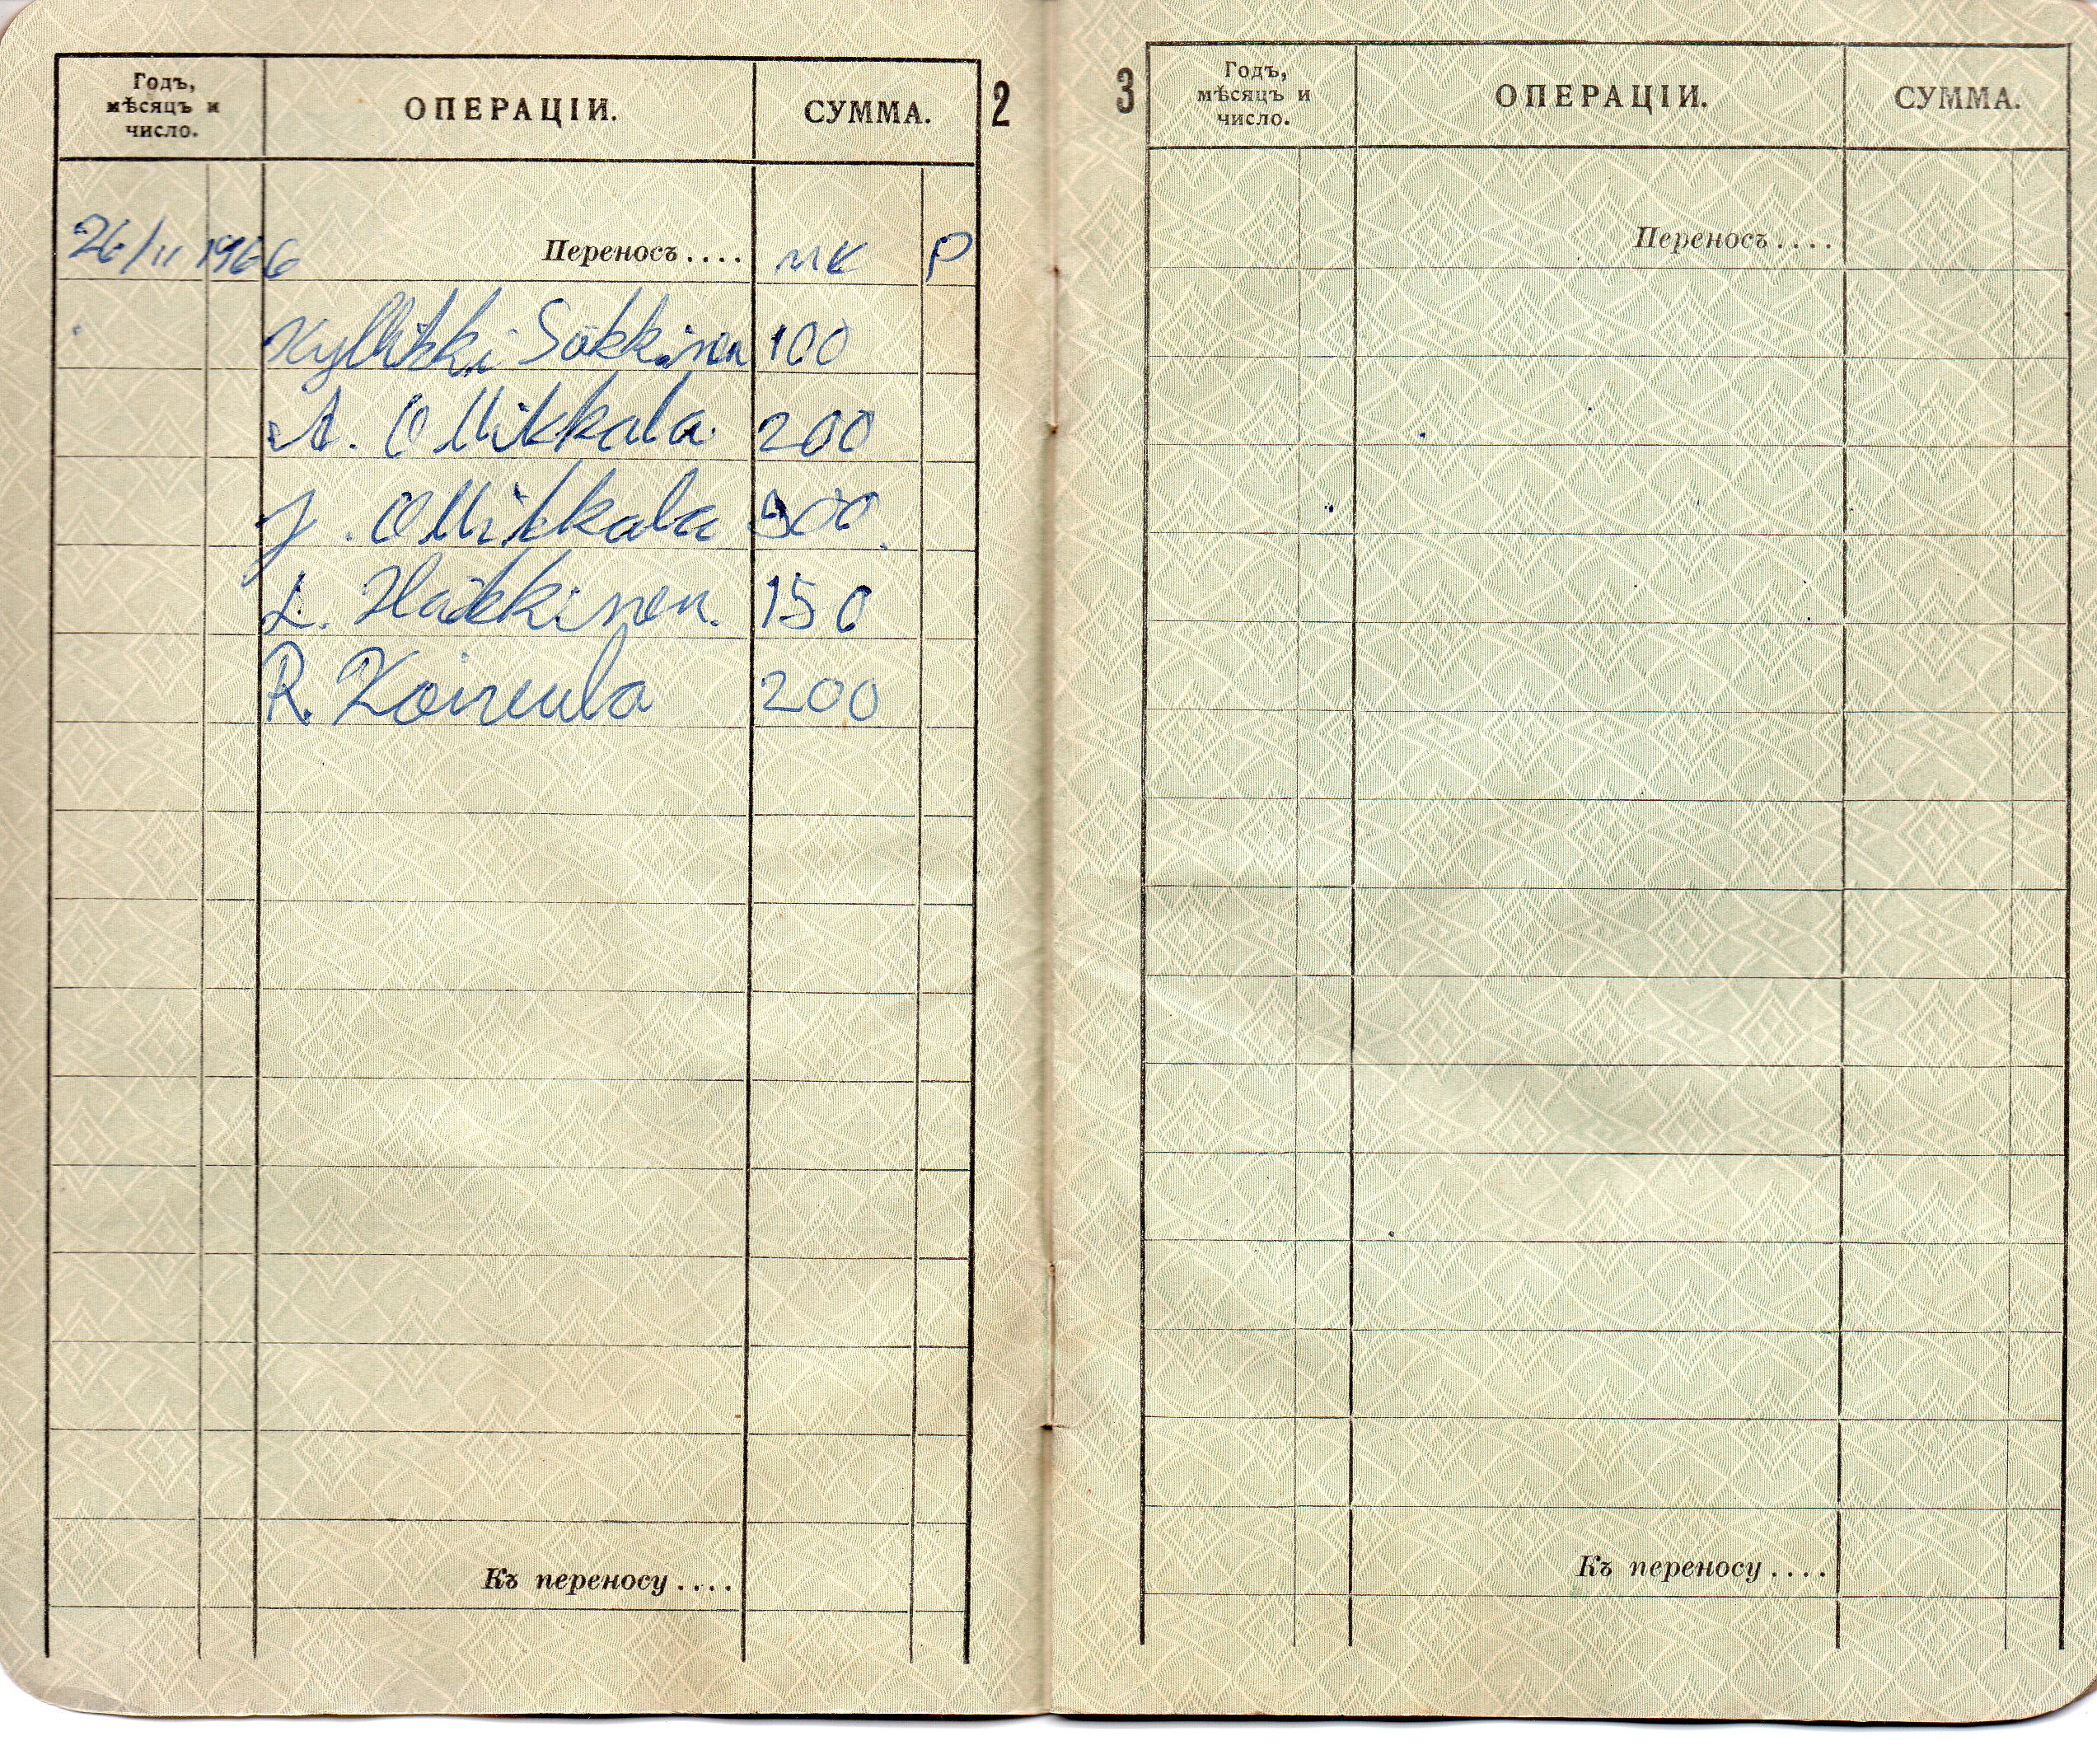 Годъ,
мѣсяцъ и
число.
ОПЕРАЦІИ.
СУММА.
2
26/11 1966
Переносъ....
MK
P
Kyllikki Sokkinen 100
A. Ollikkala 200
J. Ollikkala 500
L. Häkkinen. 150
R. 200
Къ переносу....
3
Годъ,
мѣсяцъ и
число.
ОПЕРАЦІИ.
СУММА.
Переносъ....
Къ переносу....